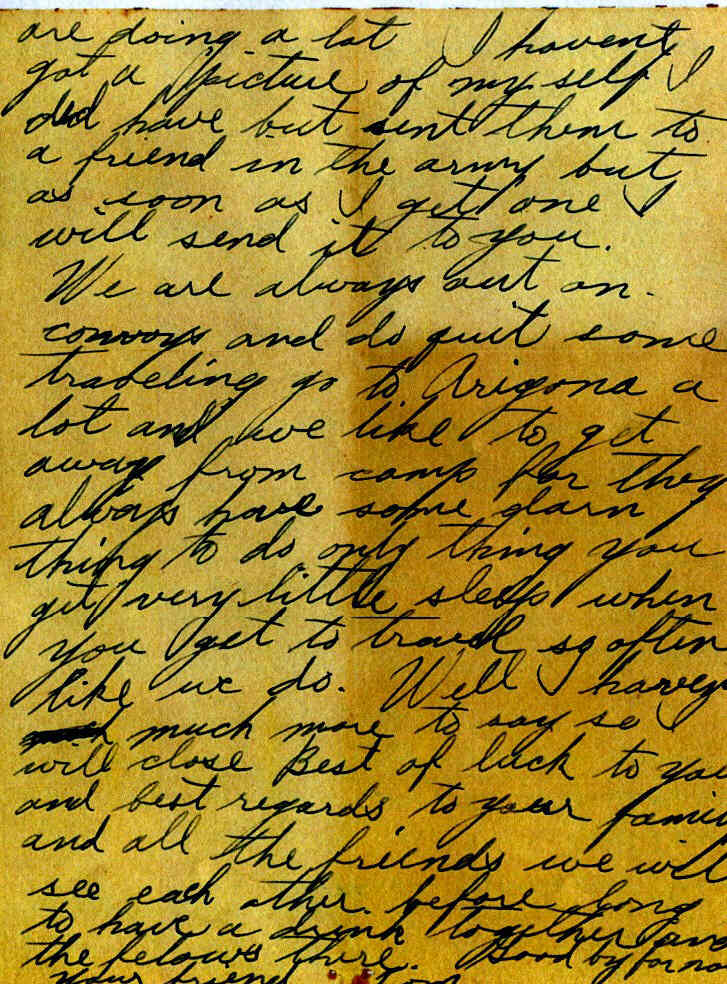 are doing a lot I havent
got a picture of my self I
did have but sent them to
a friend in the army but
as soon as I get one I
will send it to you.
We are always out on
convoys and do quit some
traveling go to Arizona a
lot and we like to get
away from camp for they
always have some darn
thing to do only thing you
get very little sleep when
you get to travel so often
like we do. Well I haven
much more to say so I
will close Best of luck to you
and best regards to your famil
and all the friends we will
see each other before long
to have a drink together an
the felows there. Good by for no
your friend